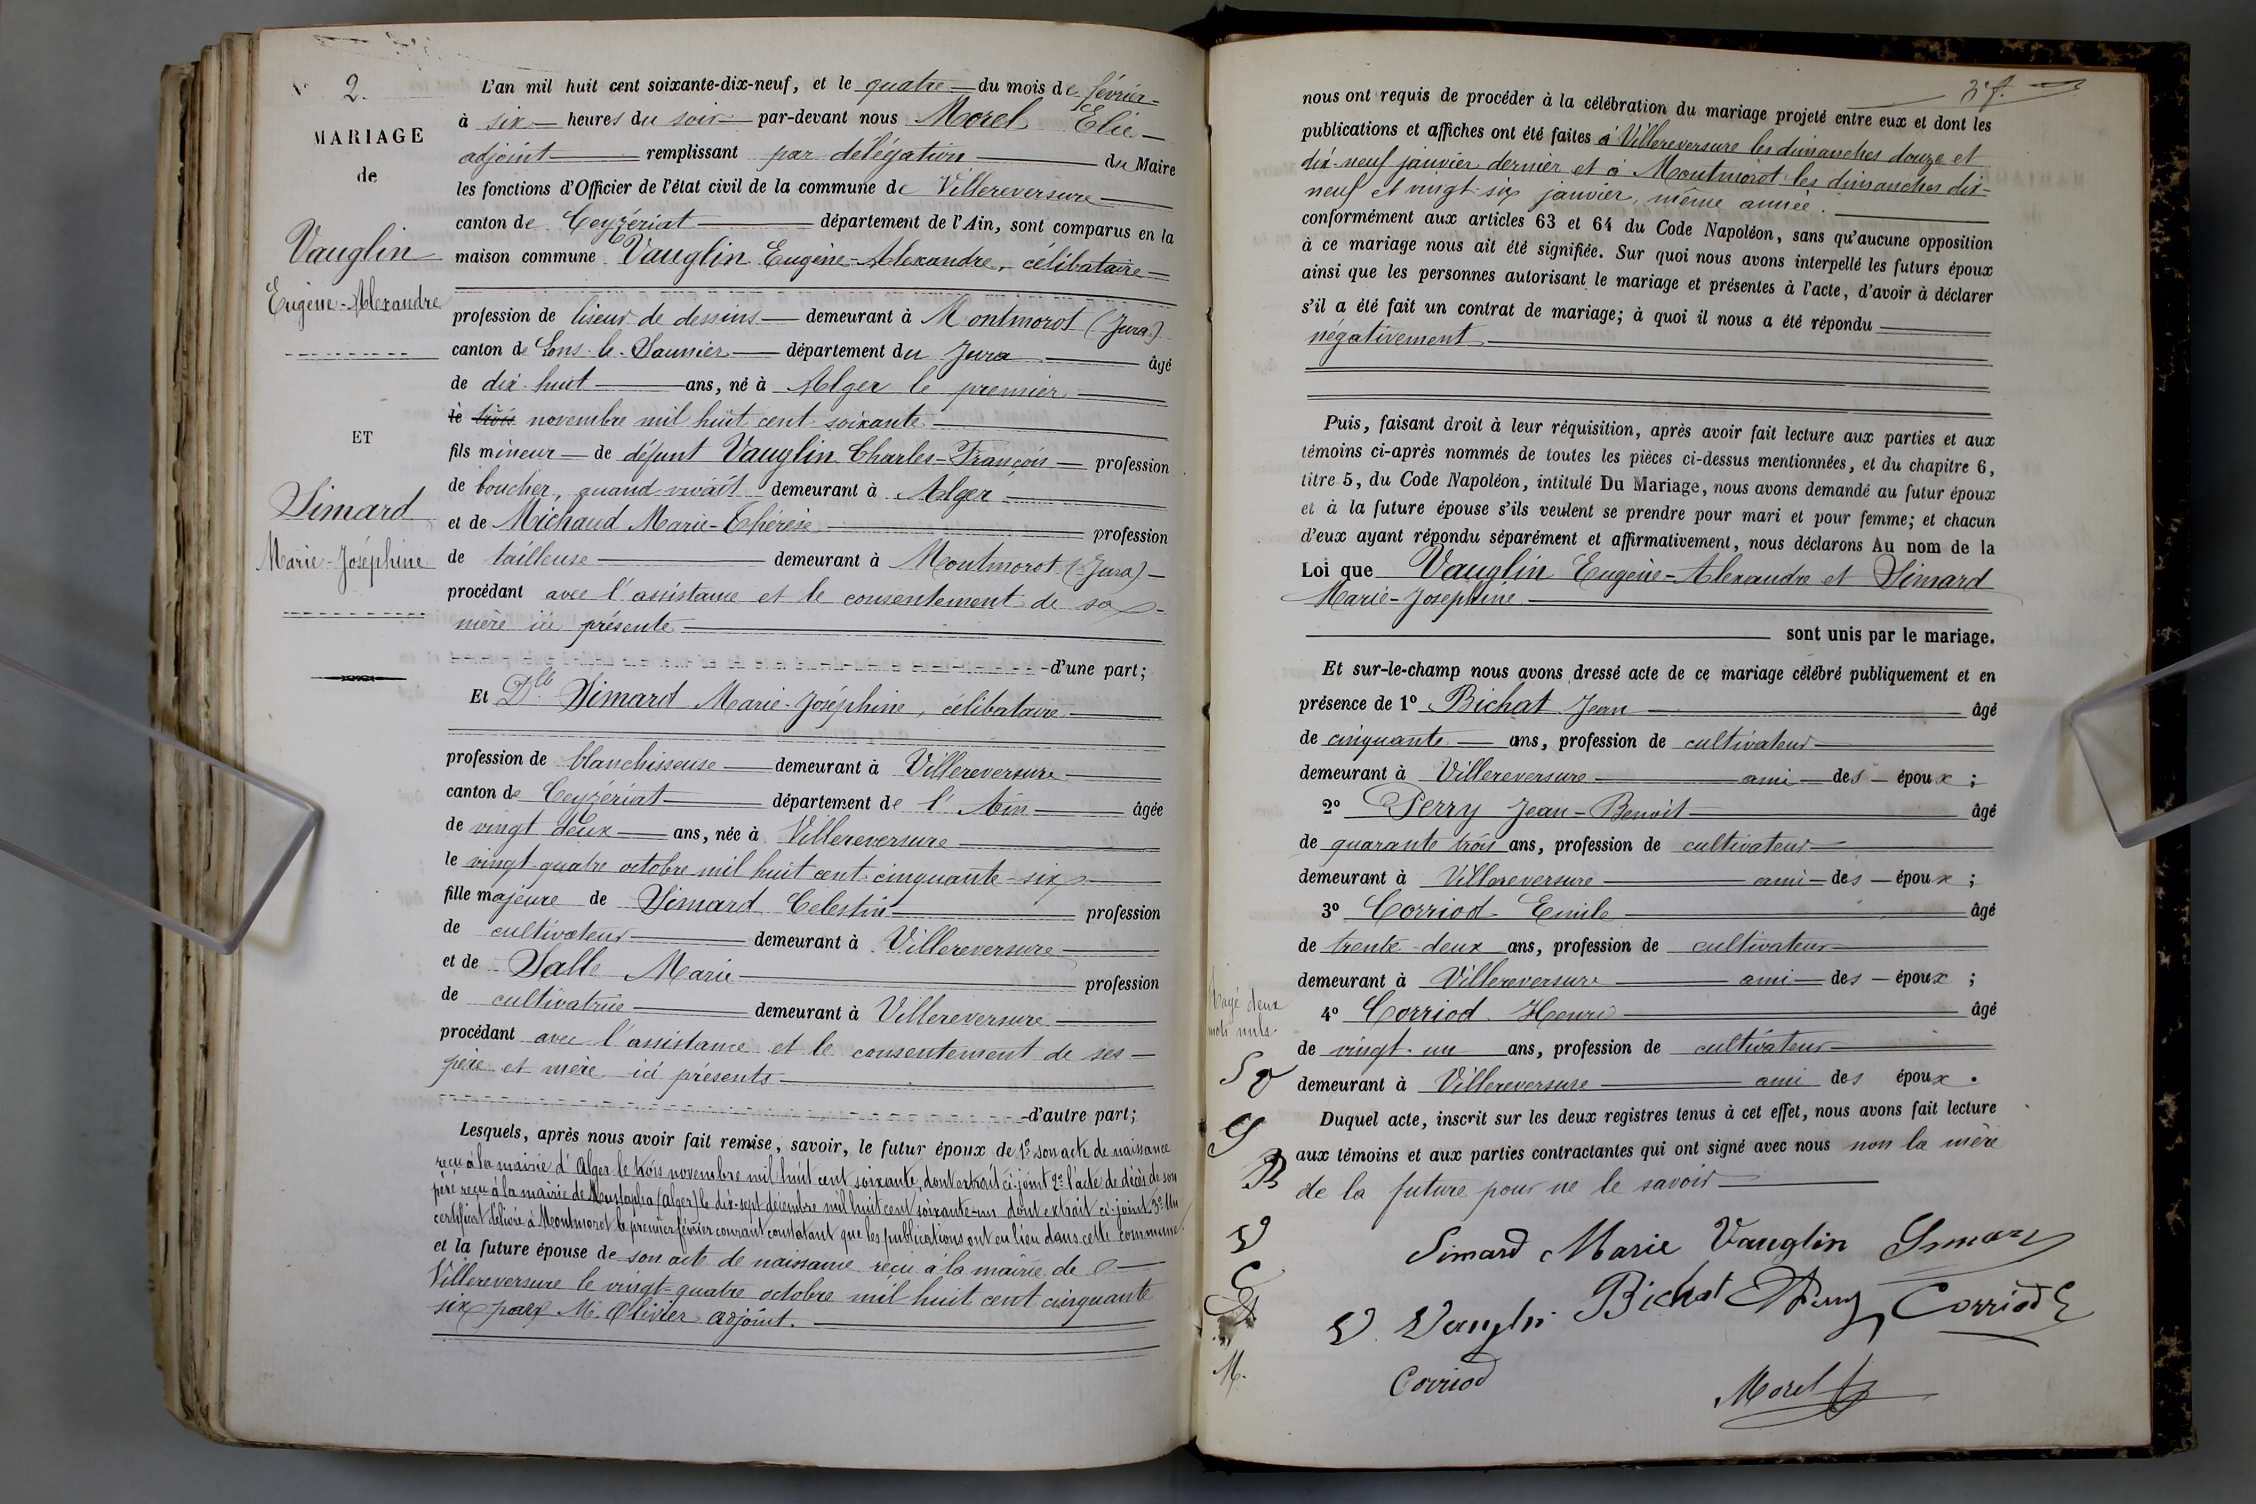 N° 2.
MARIAGE
de
Vauglin
Eugène-Alexandre
ET
Simard
Marie-Joséphine
L'an mil huit cent soixante-dix-neuf, et le quatre du mois de février
à six heures du soir par-devant nous Morel Elie
adjoint remplissant par délégation du Maire
les fonctions d'Officier de l'état civil de la commune de Villereversure
canton de Ceyzériat département de l'Ain, sont comparus en la
maison commune Vauglin Eugène-Alexandre, célibataire
profession de liseur de dessins demeurant à Montmorot (Jura)
canton de Lons-le-Saunier département du Jura âgé
de dix-huit ans, né à Alger le premier
le trois novembre mil huit cent soixante
fils mineur de défunt Vauglin Charles-François profession
de boucher, quand vivait demeurant à Alger
et de Michaud Marie-Thérèse profession
de tailleuse demeurant à Montmorot (Jura)
procédant avec l'assistance et le consentement de sa
mère ici présente
d'une part;
Et Dlle Simard Marie-Joséphine, célibataire
profession de blanchisseuse demeurant à Villereversure
canton de Ceyzériat département de l'Ain âgée
de vingt deux ans, née à Villereversure
le vingt-quatre octobre mil huit cent cinquante-six
fille majeure de Simard Celestin profession
de cultivateur demeurant à Villereversure
et de Salle Marie profession
de cultivatrice demeurant à Villereversure
procédant avec l'assistance et le consentement de ses
père et mère ici présents
d'autre part;
Lesquels, après nous avoir fait remise, savoir, le futur époux de 1° son acte de naissance
reçu à la mairie d'Alger le trois novembre mil huit cent soixante, dont extrait ci-joint 2° l'acte de décès de son
père reçu à la mairie de Mustapha (Alger) le dix-sept décembre mil huit cent soixante-un dont extrait ci-joint 3° Un
certificat délivré à Montmorot le premier février courant constatant que les publications ont eu lieu dans cette commune
et la future épouse de son acte de naissance reçu à la mairie de
Villereversure le vingt-quatre octobre mil huit cent cinquante
six par M. Olivier adjoint.
2e f.
nous ont requis de procéder à la célébration du mariage projeté entre eux et dont les
publications et affiches ont été faites à Villereversure les dimanches douze et
dix-neuf janvier dernier et à Montmorot les dimanches dix-
neuf et vingt-six janvier, même année.
conformément aux articles 63 et 64 du Code Napoléon, sans qu'aucune opposition
à ce mariage nous ait été signifiée. Sur quoi nous avons interpellé les futurs époux
ainsi que les personnes autorisant le mariage et présentes à l'acte, d'avoir à déclarer
s'il a été fait un contrat de mariage; à quoi il nous a été répondu
négativement
Puis, faisant droit à leur réquisition, après avoir fait lecture aux parties et aux
témoins ci-après nommés de toutes les pièces ci-dessus mentionnées, et du chapitre 6,
titre 5, du Code Napoléon, intitulé Du Mariage, nous avons demandé au futur époux
et à la future épouse s'ils veulent se prendre pour mari et pour femme; et chacun
d'eux ayant répondu séparément et affirmativement, nous déclarons Au nom de la
Loi que Vauglin Eugène-Alexandre et Simard
Marie-Joséphine
sont unis par le mariage.
Et sur-le-champ nous avons dressé acte de ce mariage célébré publiquement et en
présence de 1° Bichat Jean âgé
de cinquante ans, profession de cultivateur
demeurant à Villereversure ami des époux;
2° Perry Jean-Benoît âgé
de quarante trois ans, profession de cultivateur
demeurant à Villereversure ami des époux;
3° Corriod Emile âgé
de trente-deux ans, profession de cultivateur
demeurant à Villereversure ami des époux;
4° Corriod Henri âgé
de vingt-un ans, profession de cultivateur
demeurant à Villereversure ami des époux.
Duquel acte, inscrit sur les deux registres tenus à cet effet, nous avons fait lecture
aux témoins et aux parties contractantes qui ont signé avec nous non la mère
de la future pour ne le savoir
Rayé deux
mots nuls.
S V
S
B
V
C
M.
Simard Marie Vauglin Simard
V. Vauglin Bichat Perry Corriod E
Corriod
Morel